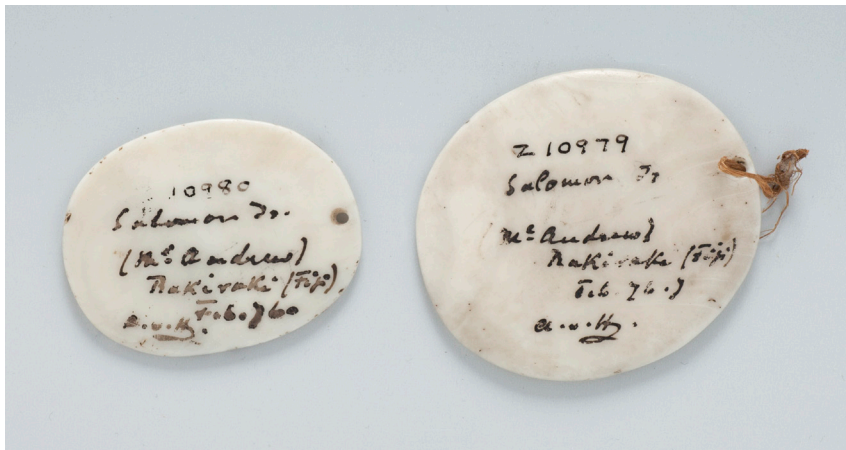 10980
Salomon Is.
(Mr Andrew)
Rakiraki (Fiji)
Feb. 76
a.v.H.
Z 10979
Salomon Is
(Mr Andrew)
Rakiraki (Fiji)
Feb. 76.
a.v.H.